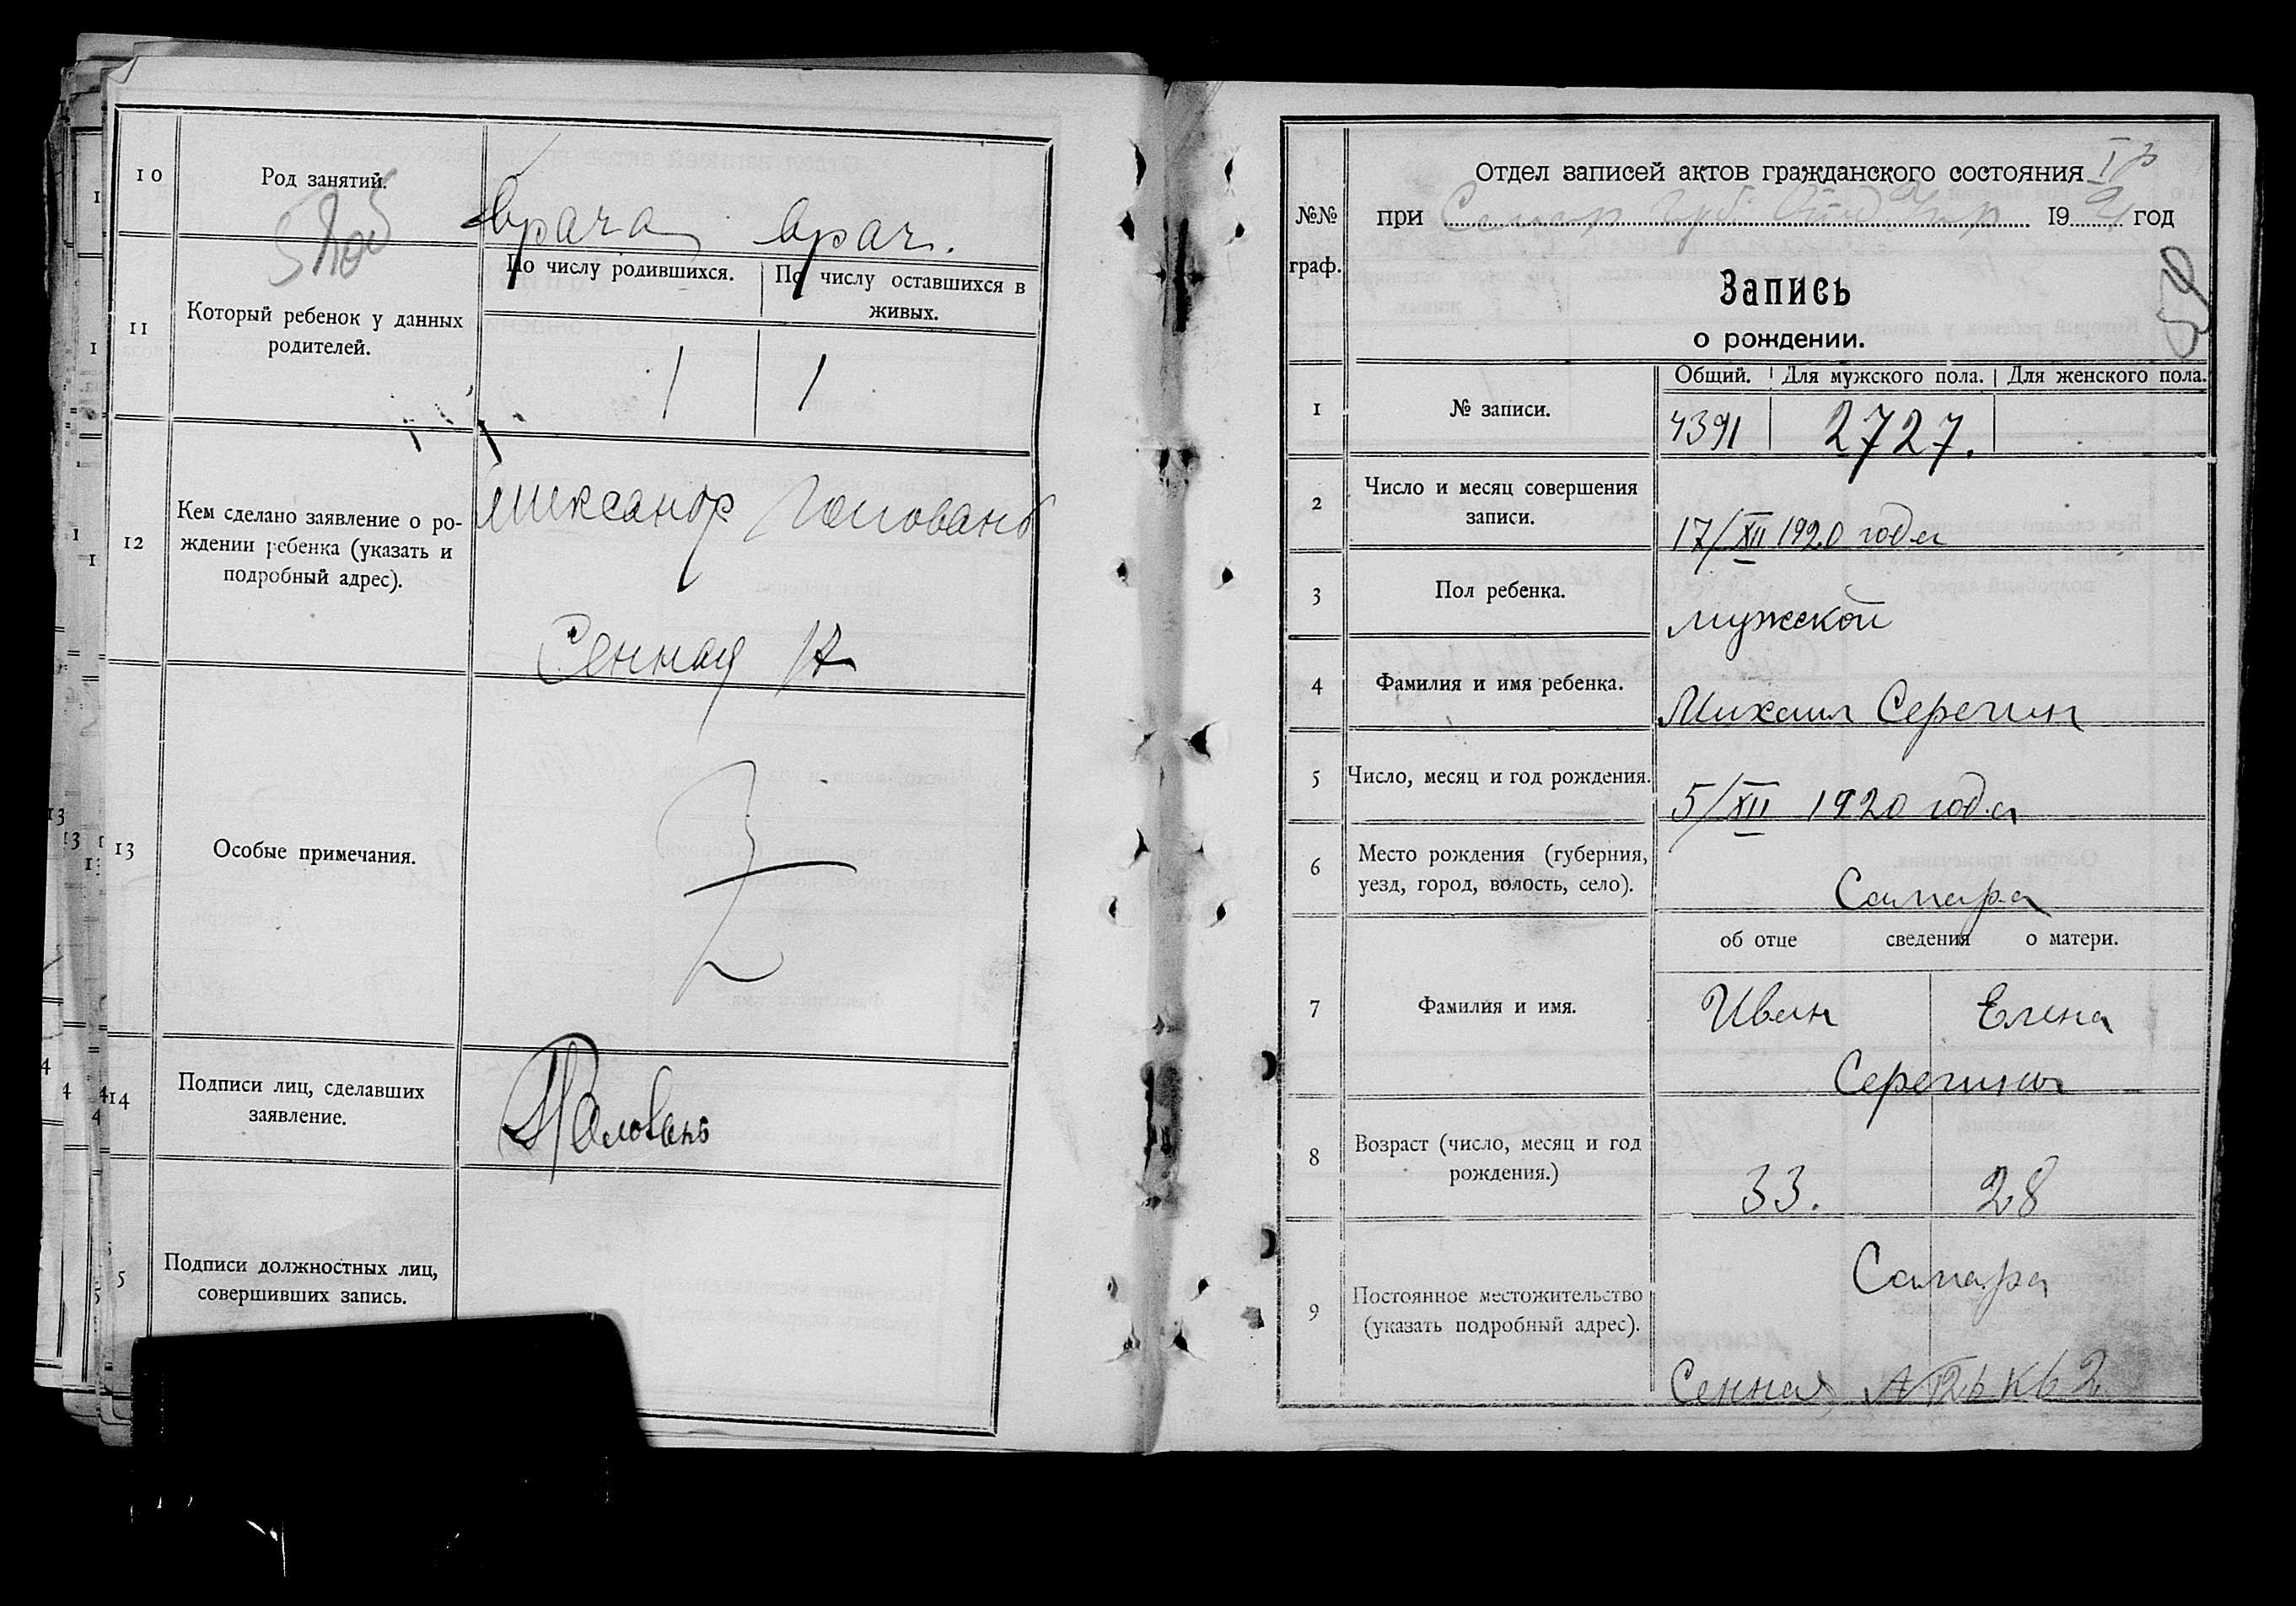 10
Род занятий.
врач врач.
11
Который ребенок у данных
родителей.
По числу родившихся.
По числу оставшихся в
живых.
1 1
12
Кем сделано заявление о ро-
ждении ребенка (указать и
подробный адрес).
Александр Головань
Сенная 12
13
Особые примечания.
14
Подписи лиц, сделавших
заявление.
Головань
5
Подписи должностных лиц,
совершивших запись.
№№
граф.
Отдел записей актов гражданского состояния
при 19 год
Запись
о рождении.
59
1
№ записи.
Общий. Для мужского пола. Для женского пола.
4391 2727.
2
Число и месяц совершения
записи.
17/XII 1920 года
3
Пол ребенка.
мужской
4
Фамилия и имя ребенка.
Михаил Серегин
5
Число, месяц и год рождения.
5/XII 1920 года
6
Место рождения (губерния,
уезд, город, волость, село).
Самара
об отце сведения о матери.
7
Фамилия и имя.
Иван Елена
Серегины
8
Возраст (число, месяц и год
рождения.)
33. 28
9
Постоянное местожительство
(указать подробный адрес).
Самара
Сенная кв 2